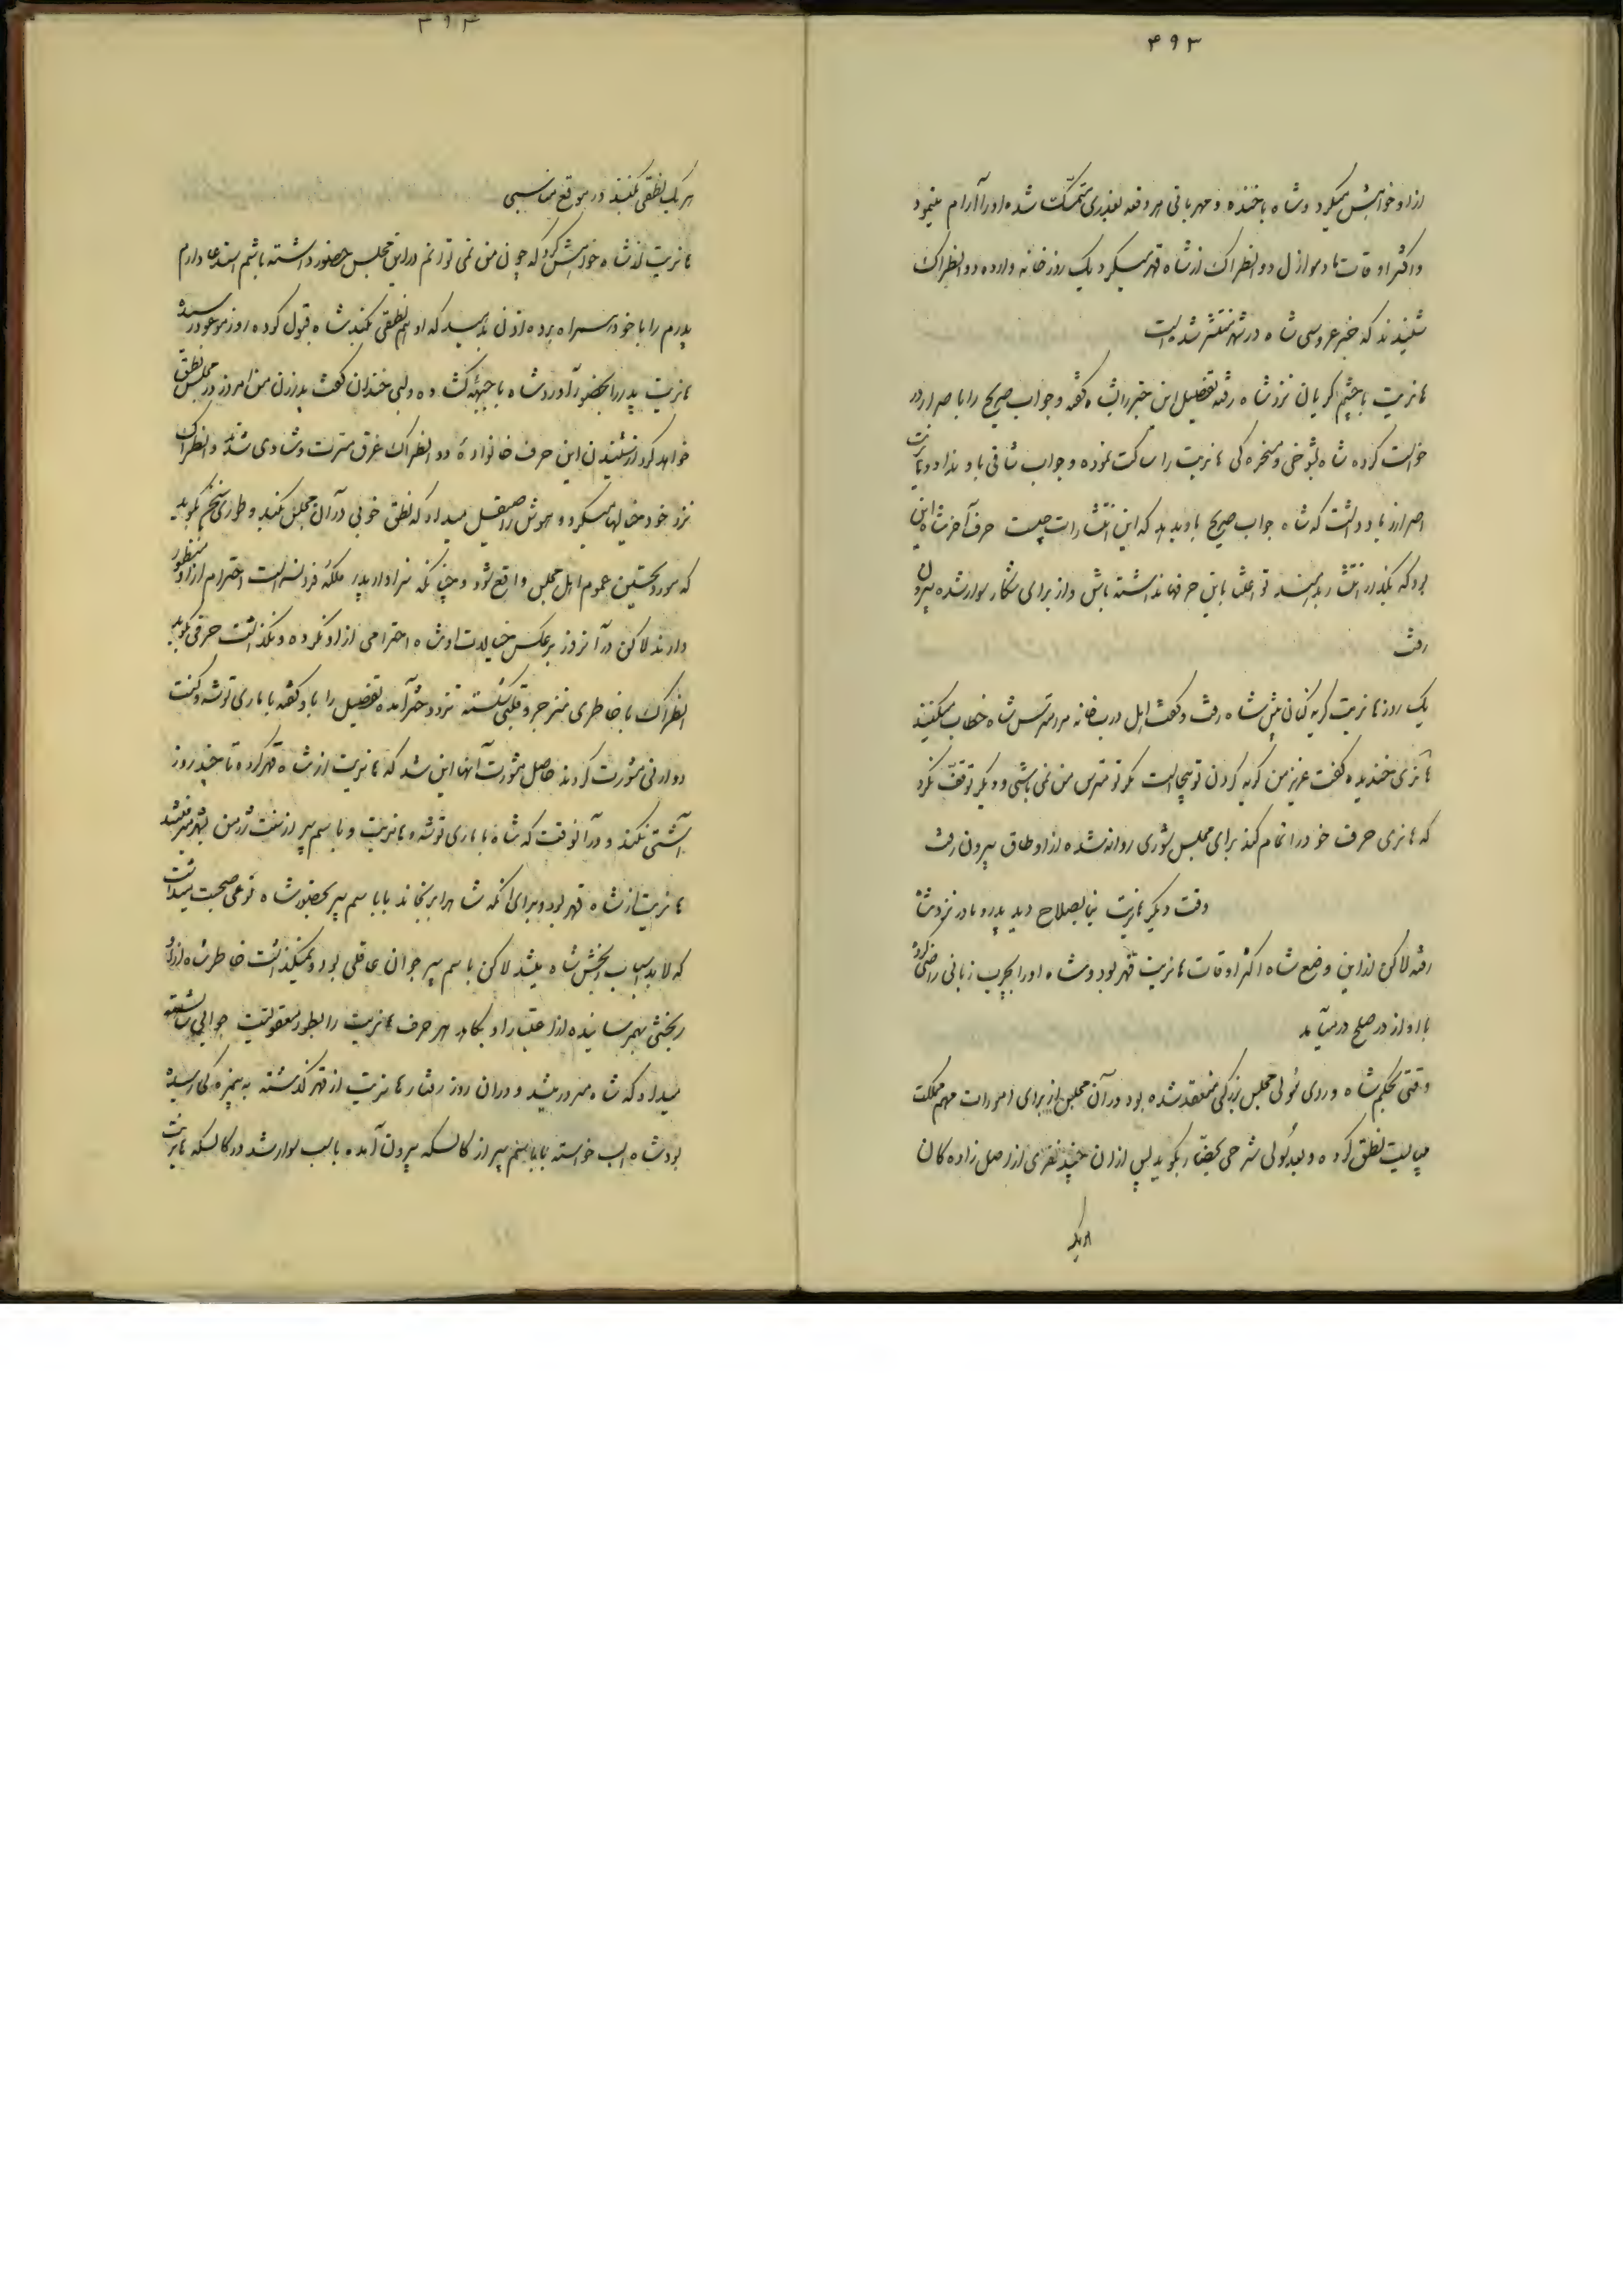 ۳۹۳
ازاو خواهش میکرد و شاه باخنده و مهربانی هر وقته بعذری متمسک شده اورا آرام مینمود
و اکثر اوقات مادموازل دو انطراک از شاه قهر میکرد یک روز خانه واده دو انطراک
شنیدند که خبر عروسی شاه در شهر منتشر شده است
هانریت باچشم گریان نزد شاه رفته تفصیل این خبر را بشاه گفته و جواب صریح را با صرار از او
خواست کرده شاه بشوخی و مسخره کی هانریت را ساکت نموده و جواب شافی باو نداد و هانریت
اصرار زیاد داشت که شاه جواب صریح باو بدهد که این انتشارات چیست حرف آخر شاه این
بود که بگذار انتشار بدهند تو اعتنا باین حرفها نداشته باش و از برای شکار سوار شده بیرون
رفت
یک روز هانریت گریه کنان پیش شاه رفت و گفت اهل دربخانه مرا مترس شاه خطاب میکنند
هانری خندیده گفت عزیز من گریه کردن تو بیجا است مگر تو مترس من نمی باشی و دیگر توقف نکرد
که هانری حرف خود را تمام کند برای مجلس شوری روانه شده از اوطاق بیرون رفت
وقت دیگر هانریت بنا بصلاح دید پدر و مادر نزد شاه
رفته لاکن از این وضع شاه اکثر اوقات هانریت قهر بود و شاه اورا بچرب زبانی راضی کرده
با او از در صلح درمیآمد
وقتی بحکم شاه و ردی سولی مجلس بزرگی منعقد شده بود در آن مجلس از برای امورات مهم مملکت
میبایست نطق کرده و بعد سولی شرحی بحضار بگوید پس ازان چند نفری از اصل زاده کان
هریک
۳۹۴
هر یک نطقی بکنند در موقع مناسبی
هانریت از شاه خواهش کرد که چون من نمی توانم دراین مجلس حضور داشته باشم استدعا دارم
پدرم را با خود همراه برده اذن بدهید که او هم نطقی بکند شاه قبول کرده روز موعود رسیده
هانریت پدر را بحضور آورد شاه با جبهه گشاده و لبی خندان گفت پدرزن من امروز در مجلس نطق
خواهد کرد از شنیدن این حرف خانواده دو انطراک غرق مسرت و شادی شدند و انطراک
نزد خود خیالها میکرد و هوش را صیقل میداد که نطق خوبی در آن مجلس بکند و طوری سخن بگوید
که مورد تحسین عموم اهل مجلس واقع شود و چنانکه سزاوار پدر ملکه فرانسه است احترام از او منظور
دارند لاکن در آنروز برعکس خیالات او شاه احترامی از او نکرده و نگذاشت حرفی بگوید
انطراک با خاطری منزجر و قلبی شکسته نزد دختر آمده تفصیل را باو گفته با ماری توشه و کنت
دوارنی مشورت کردند حاصل مشورت آنها این شد که هانریت از شاه قهر کرده تا چند روز
آشتی نکند و در آنوقت که شاه با ماری توشه و هانریت و باسم پیر از سنت ژرمن بشهر میرفتند
هانریت از شاه قهر بود و برای انکه شاه را برنجاند با باسم پیر بحضور شاه نوعی صحبت میداشت
که لابد اسباب رنجش شاه میشد لاکن باسم پیر جوان عاقلی بود و نمیگذاشت خاطر شاه از او
رنجشی بهمرسانیده از اعتبار او بکاهد هر حرف هانریت را بطور معقولیت جوابی شایسته
میداد که شاه مسرور میشد و دران روز رفتار هانریت از قهر گذشته به هرزه گی رسیده
بود شاه اسب خواسته با باسم پیر از کالسکه بیرون آمده باسب سوار شد در کالسکه هانریت